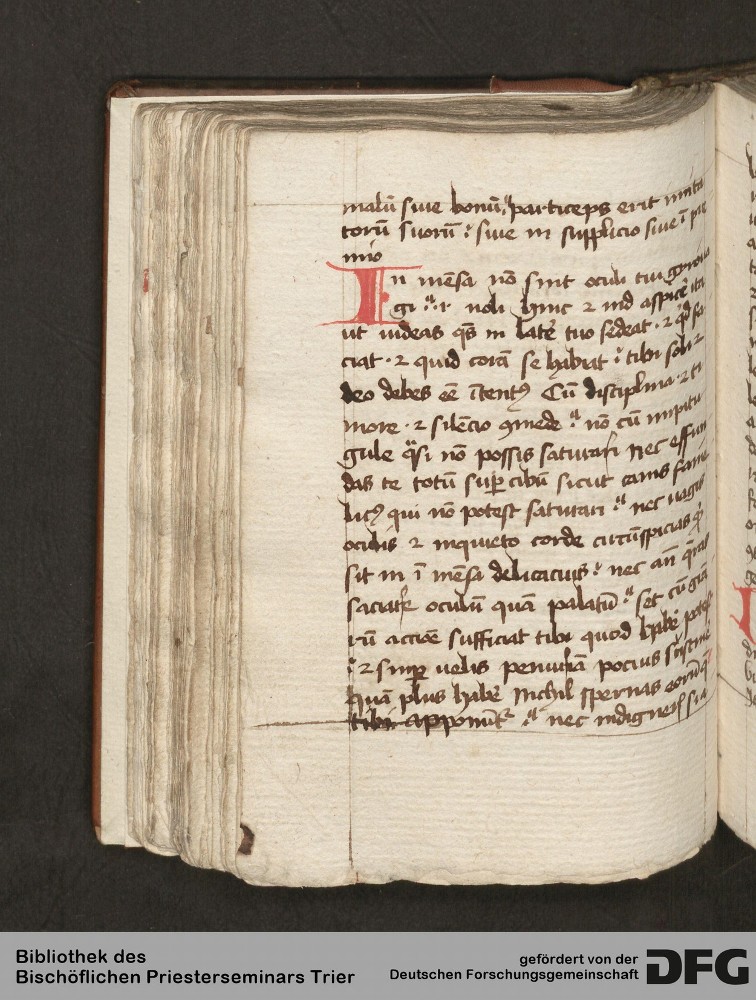 malū siue bonū, particeps erit imita
torū suorū : siue in supplicio siue ī pre
mio
In mēsa nō sint oculi tui gyroua
gi : noli hinc ⁊ ind aspicē ita
ut uideas q̄s in latē tuo sedeat · ⁊ qd fa
ciat · ⁊ quid corā se habeat : tibi soli ⁊
deo debes eē ītentꝰ Cū disciplina · ⁊ ti
more · ⁊ silēcio ꝯmede : nō cū impetu
gule q̄si nō possis saturari Nec effun
das te totū sup cibū sicut canis fame
licꝰ qui nō potest saturari : nec uagis
oculis ⁊ inquieto corde circūspicias qͥd
sit in ī mēsa delicacius : nec an q̄ras
saciare oculū quā palatū : set cū grā
rū accōe sufficiat tibi quod habē potes
: ⁊ semp uelis penuriā pocius sustinē
quā plus habē Nichil spernas eorū q̄
tibi apponūt᷑ : nec indigneris si
Bibliothek des
Bischöflichen Priesterseminars Trier
gefördert von der
Deutschen Forschungsgemeinschaft
DFG